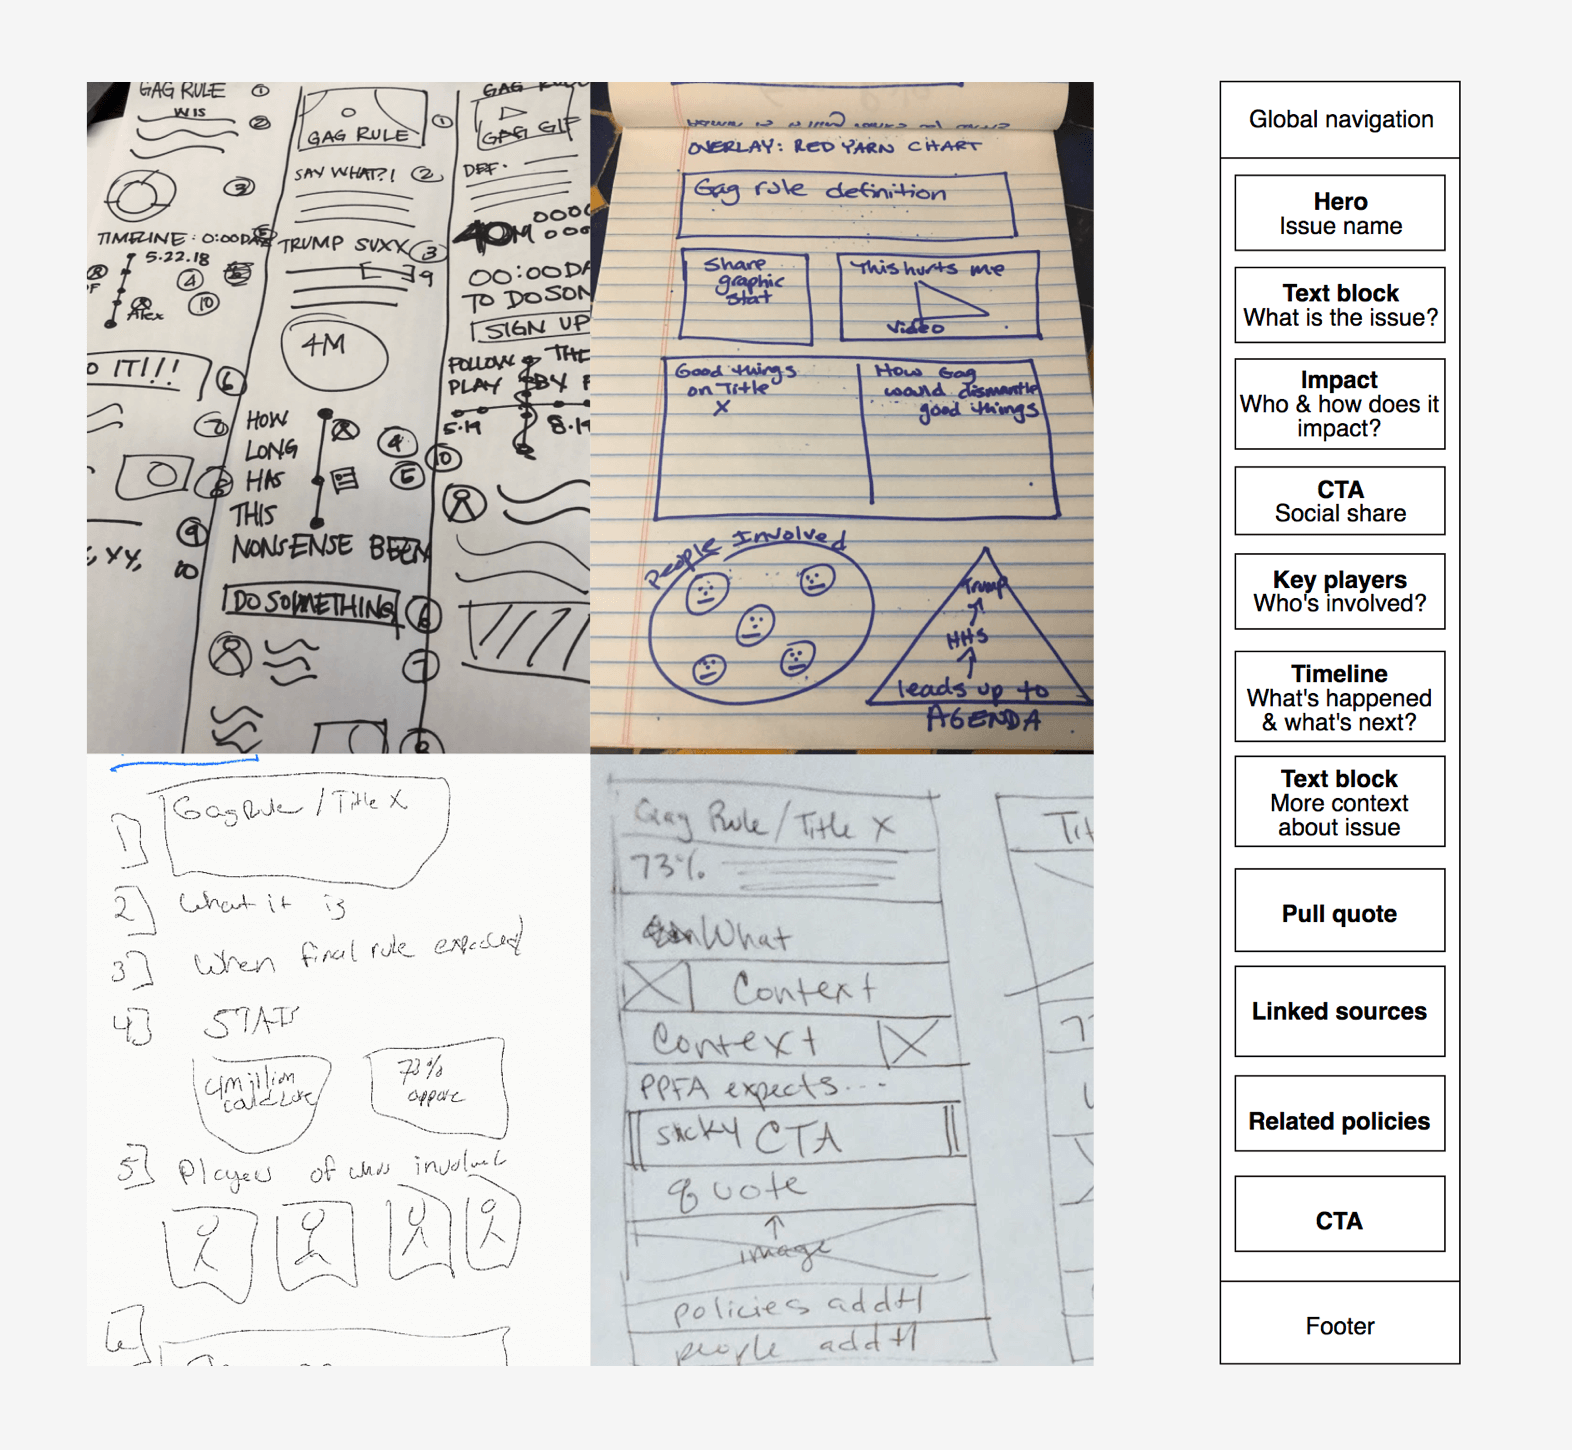 GAG RULE
WIS
TIMELINE: 0:00
5.22.18
Alex
IT!!!
GAG RULE
SAY WHAT?!
TRUMP SUXX
4M
HOW
LONG
HAS
THIS
NONSENSE BEEN
DO SOMETHING
GAG GIF
DEF.
40M
00:00
TO DO SOM
SIGN UP
FOLLOW THE
PLAY BY
5.19
OVERLAY: RED YARN CHART
Gag rule definition
Share
graphic
stat
This hurts me
Video
Good things
on Title
X
How Gag
would dismantle
good things
People Involved
Trump
HHS
leads up to
AGENDA
1] Gag Rule / Title X
2] What it is
3] When final rule expected
4] STATS
4 million
could lose
73%
5] Players of who involved
Gag Rule / Title X
73%
What
Context
Context
PPFA expects...
sticky CTA
quote
image
policies addtl
people addtl
Global navigation
Hero
Issue name
Text block
What is the issue?
Impact
Who & how does it
impact?
CTA
Social share
Key players
Who's involved?
Timeline
What's happened
& what's next?
Text block
More context
about issue
Pull quote
Linked sources
Related policies
CTA
Footer